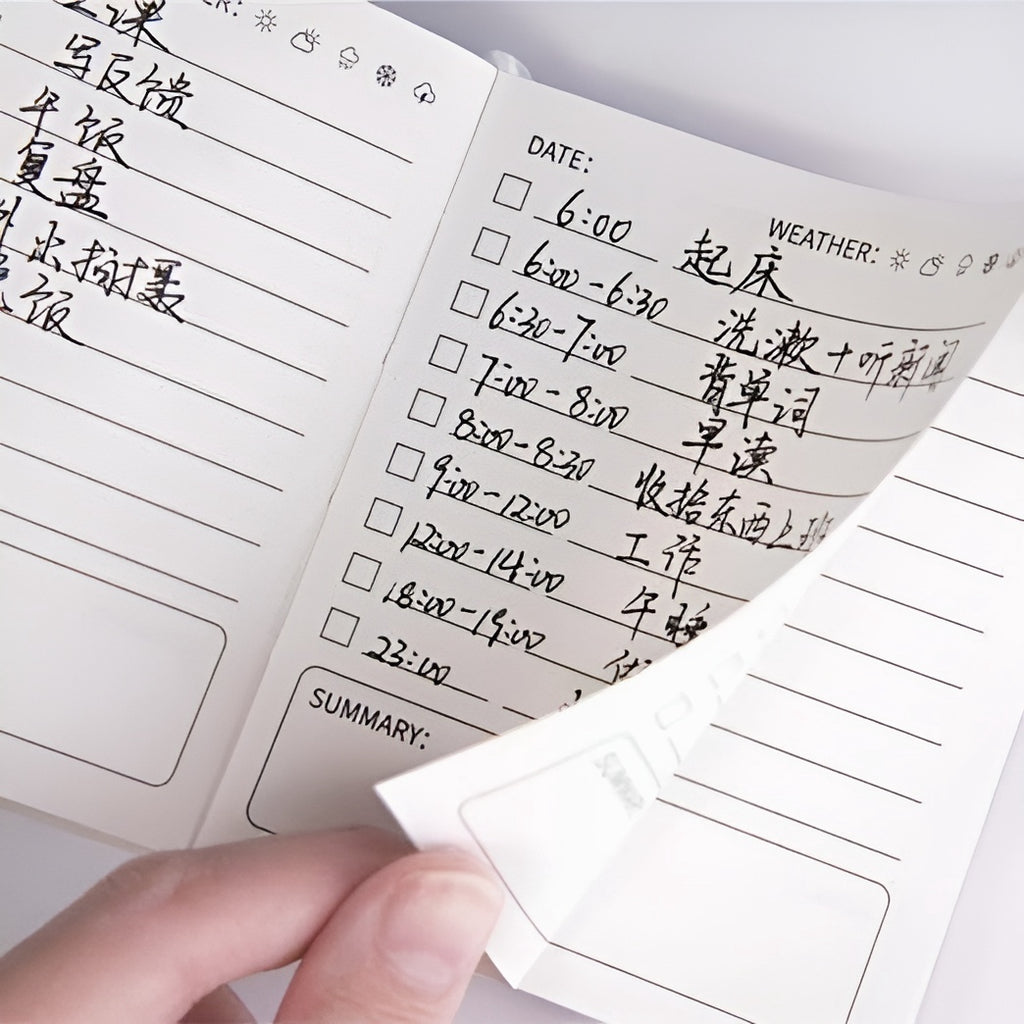 上课
写反馈
午饭
复盘
饭
DATE:
WEATHER:
6:00 起床
6:00-6:30 洗漱+听新闻
6:30-7:00 背单词
7:00-8:00 早读
8:00-8:30 收拾东西上班
9:00-12:00 工作
12:00-14:00 午睡
18:00-19:00
23:00
SUMMARY: